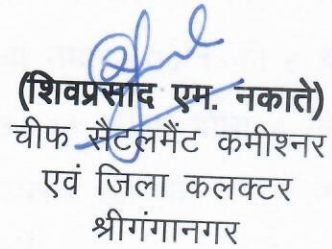 (शिवप्रसाद एम. नकाते)
चीफ सैटलमैंट कमीश्नर
एवं जिला कलक्टर
श्रीगंगानगर